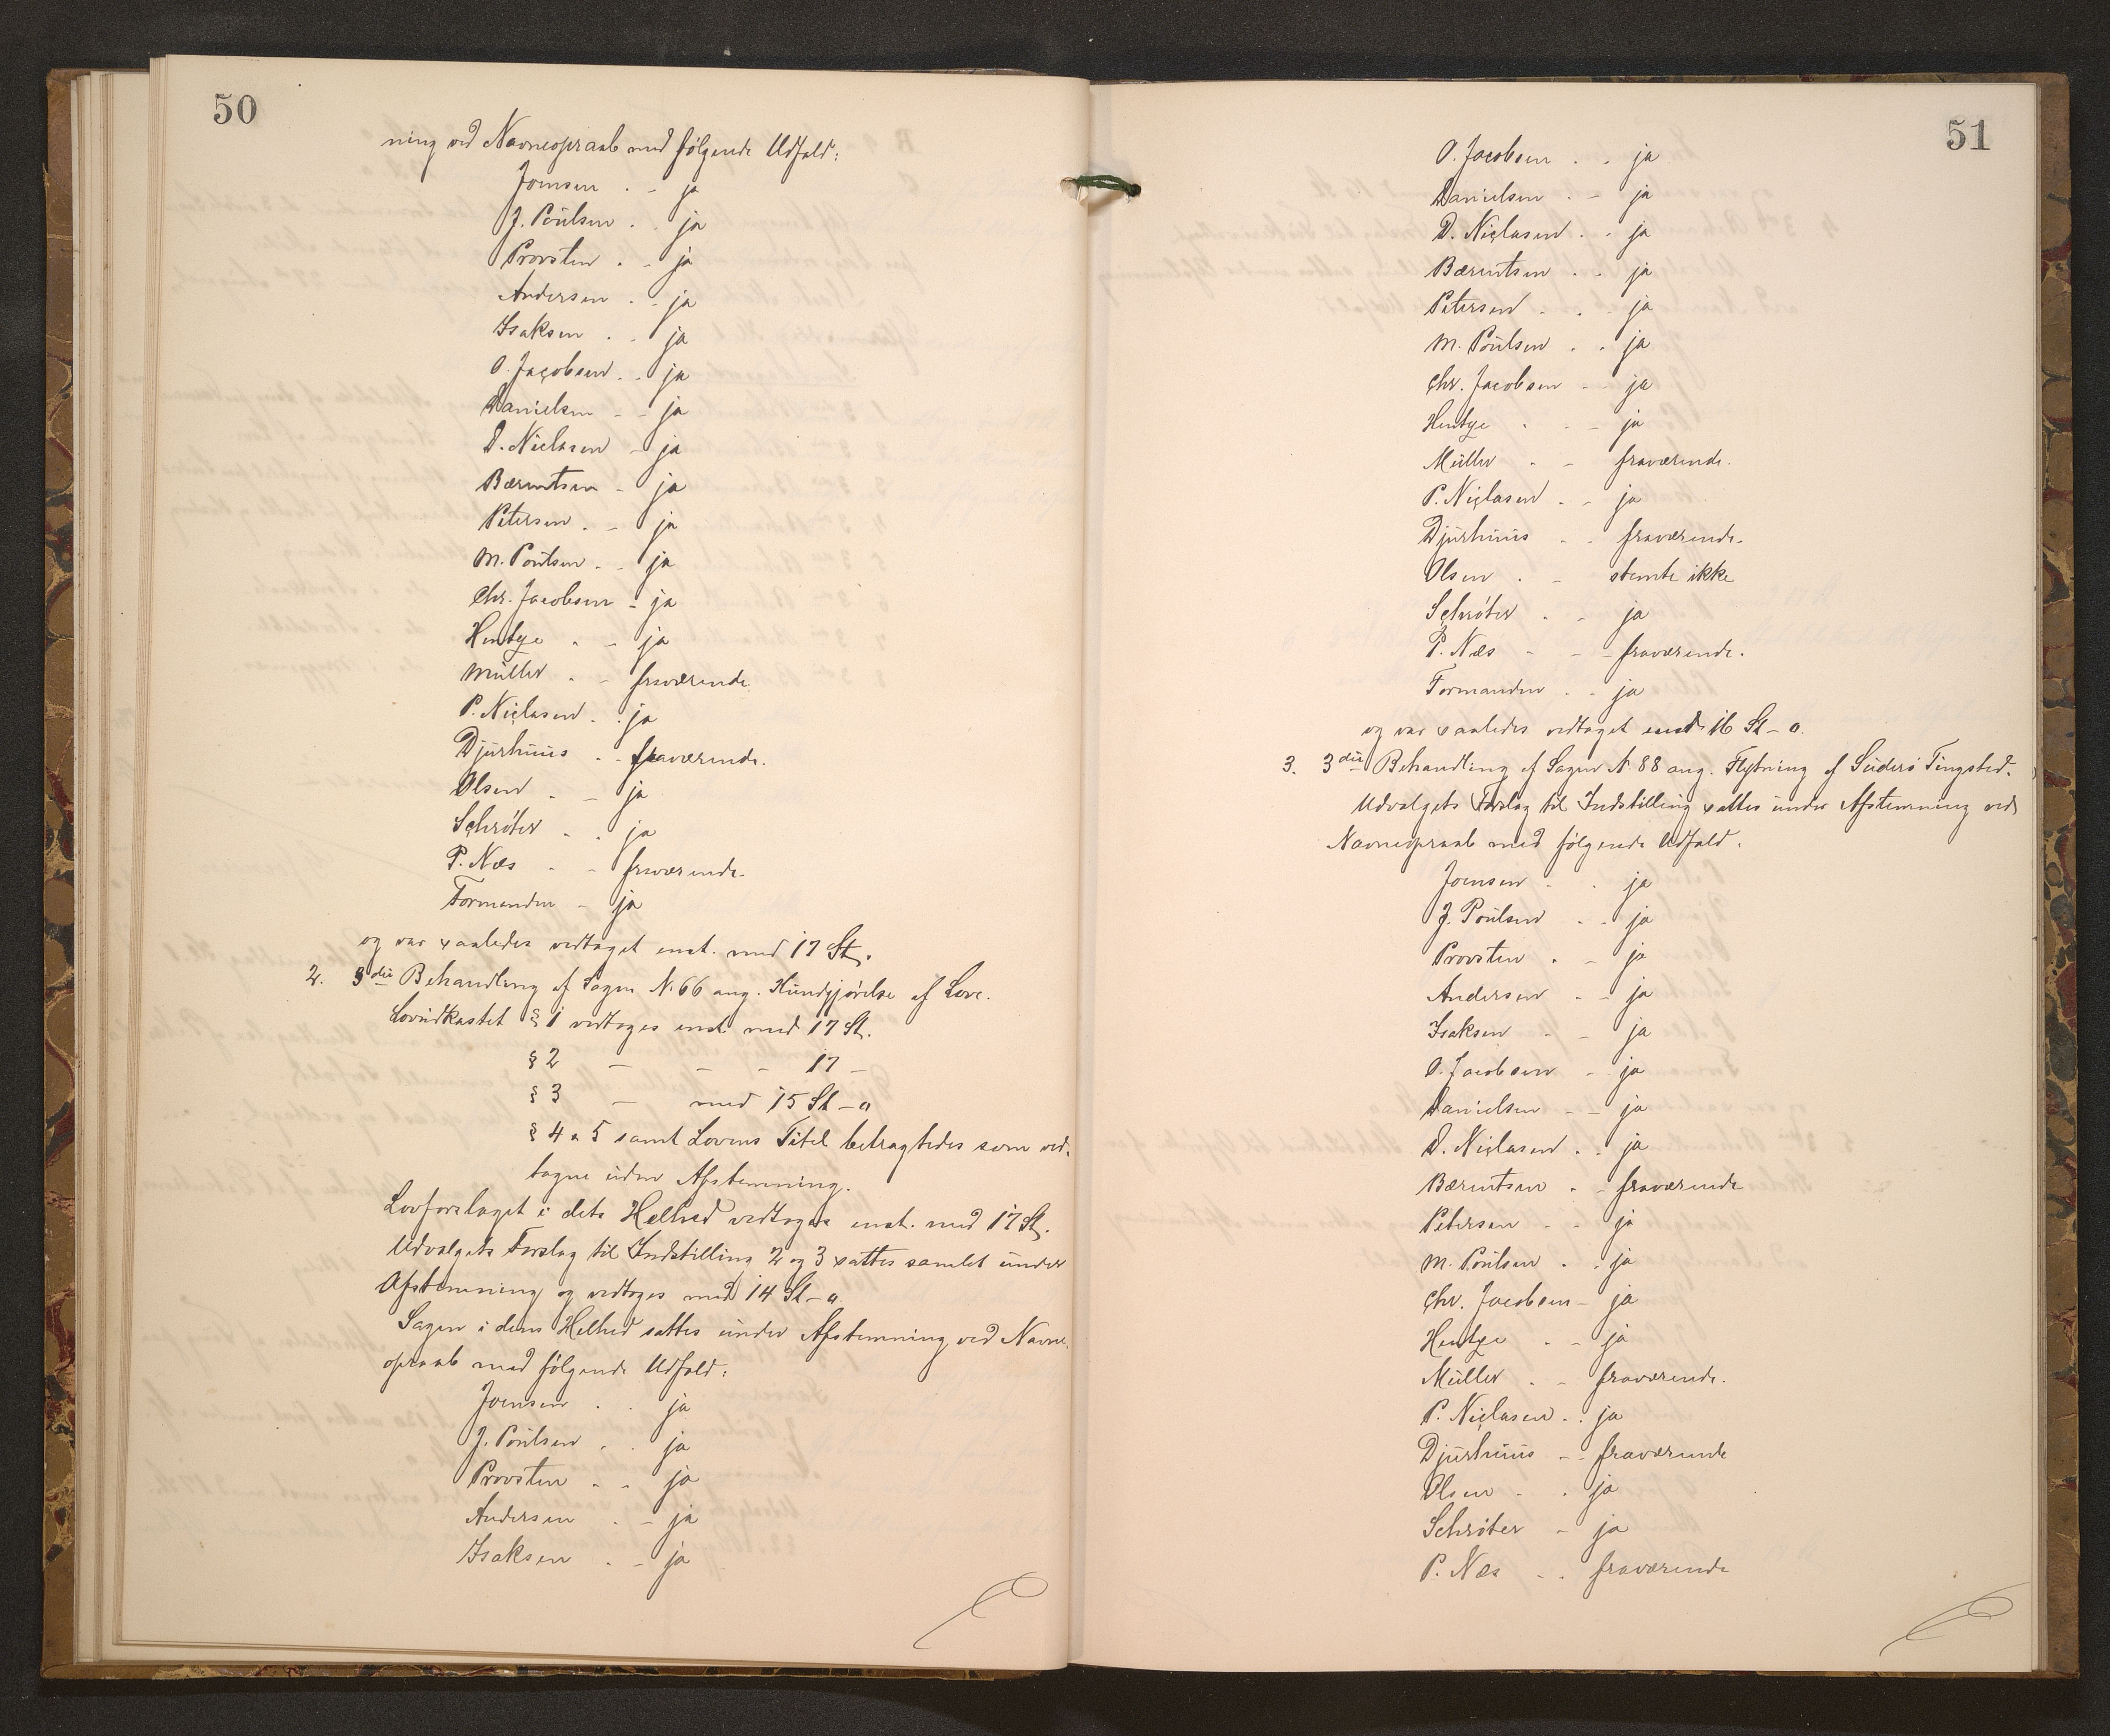 50
ning ved Navneopraab med følgende Udfald:
Joensen . - ja
J. Poulsen . . ja
Provsten . - ja
Andersen . - ja
Isaksen . - ja
O. Jacobsen . . ja
Danielsen - - ja
D. Niclasen - ja
Bærentsen - ja
Petersen . - ja
M. Poulsen . - ja
Chr. Jacobsen - ja
Hentze . - ja
Müller . - fraværende
P. Niclasen . . ja
Djurhuus . - fraværende.
Olsen . - ja
Schrøter . . ja
P. Næs . - fraværende.
Formanden - ja
og var saaledes vedtaget enst. med 17 St.
2. 3die Behandling af Sagen N. 66 ang. Kundgjørelse af Love.
Lovudkastet § 1 vedtoges enst. med 17 St.
§ 2 — - - 17 —
§ 3 — med 15 St - 0
§ 4 & 5 samt Lovens Titel betragtedes som ved-
tagne uden Afstemning.
Lovforslaget i dets Helhed vedtoges enst. med 17 St.
Udvalgets Forslag til Indstilling 2 og 3 sattes samlet under
Afstemning og vedtoges med 14 St - 0.
Sagen i dens Helhed sattes under Afstemning ved Navne-
opraab med følgende Udfald:
Joensen . . ja
J. Poulsen . . ja
Provsten . . ja
Andersen . - ja
Isaksen . - ja
51
O. Jacobsen . . ja
Danielsen . - ja
D. Niclasen . . ja
Bærentsen . . ja
Petersen . . ja
M. Poulsen . . ja
Chr. Jacobsen - - ja
Hentze . - ja
Müller . - fraværende.
P. Niclasen . - ja
Djurhuus . . fraværende.
Olsen . - stemte ikke
Schrøter . - ja
P. Næs - - fraværende.
Formanden . . ja
og var saaledes vedtaget med 16 St - 0.
3. 3die Behandling af Sagen N. 88 ang. Flytning af Suderø Tingsted.
Udvalgets Forslag til Indstilling sattes under Afstemning ved
Navneopraab med følgende Udfald.
Joensen . . ja
J. Poulsen . . ja
Provsten . - ja
Andersen . - ja
Isaksen . - ja
O. Jacobsen - ja
Danielsen - - ja
D. Niclasen . . ja
Bærentsen . - fraværende
Petersen - - ja
M. Poulsen . . ja
Chr. Jacobsen - ja
Hentze . - ja
Müller . - fraværende.
P. Niclasen . . ja
Djurhuus - - fraværende
Olsen . . ja
Schrøter - ja
P. Næs . . fraværende